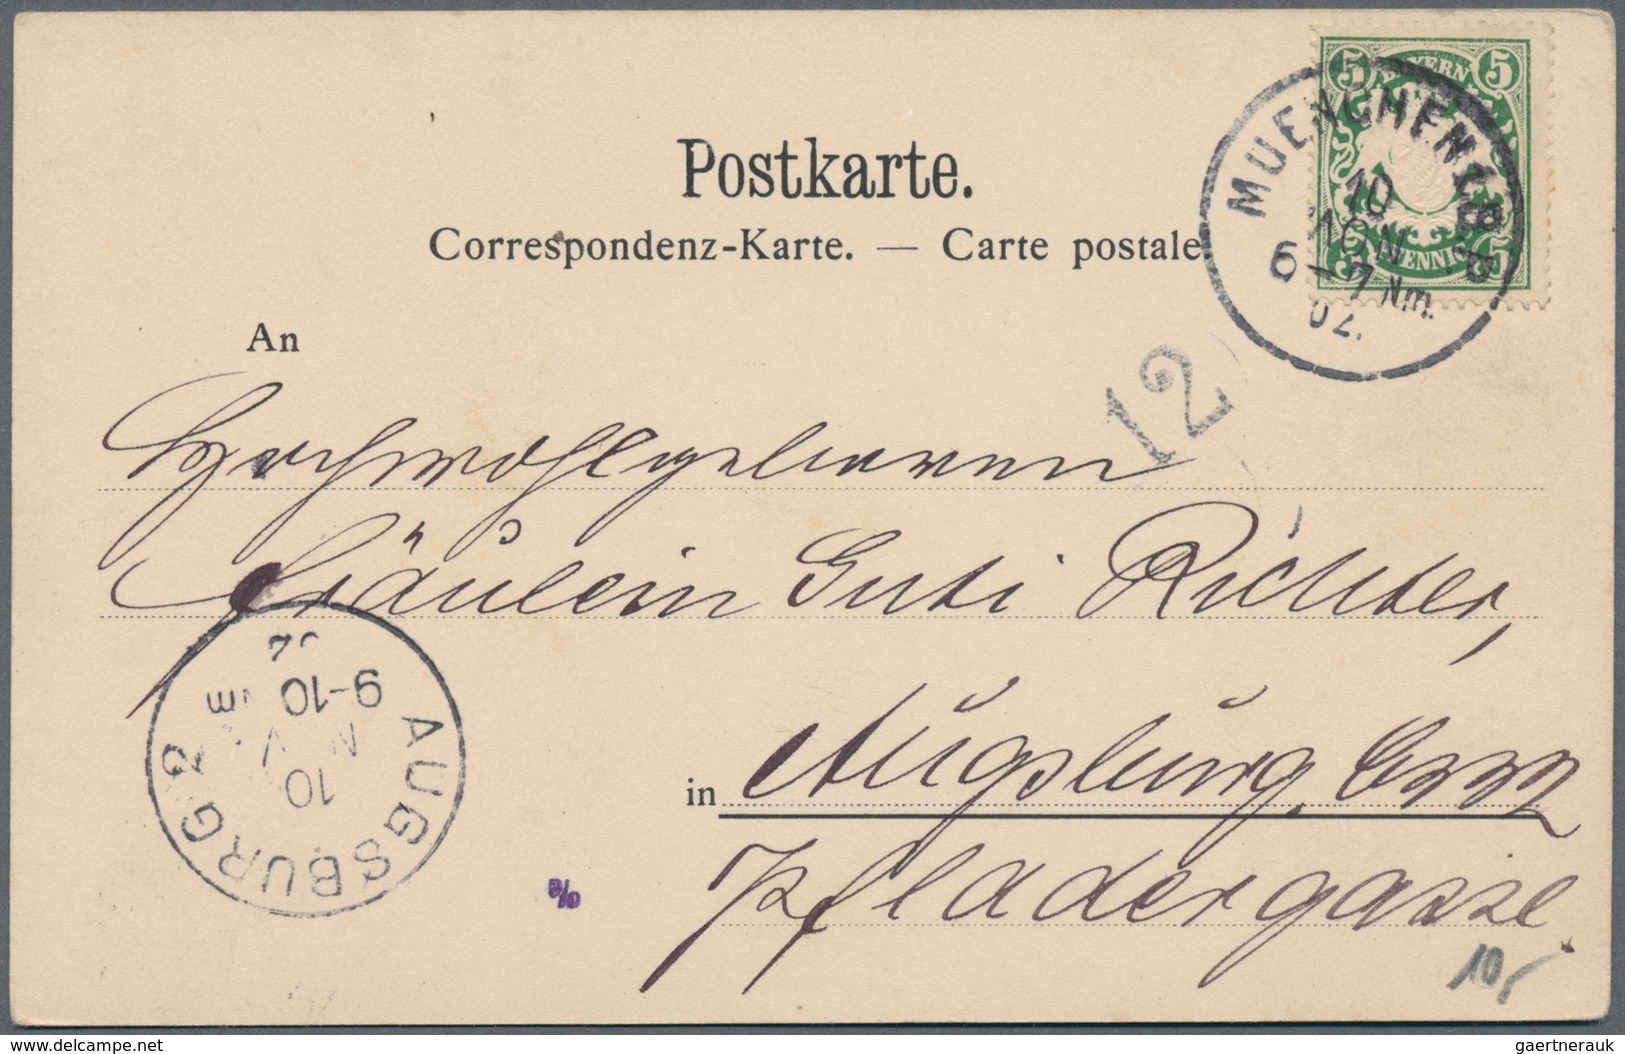 5 BAYERN 5
Postkarte.
MUENCHEN
10
NOV
6-7 Nm.
02.
5 PFENNIG 5
Correspondenz-Karte. — Carte postale
An
12
Hochwohlgeboren
Fräulein Gusti Richter,
in Augsburg.
Pfladergasse.
AUGSBURG 2
10
NOV
9-10
10
www.delcampe.net
gaertnerauk